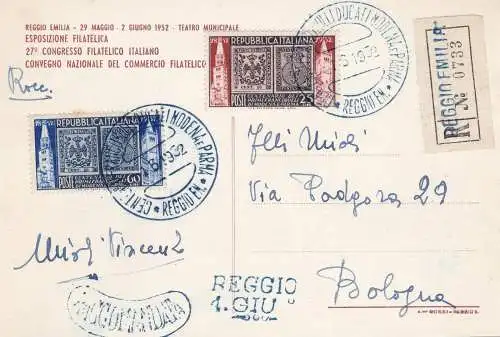 REGGIO EMILIA - 29 MAGGIO - 2 GIUGNO 1952 - TEATRO MUNICIPALE
ESPOSIZIONE FILATELICA
27° CONGRESSO FILATELICO ITALIANO
CONVEGNO NAZIONALE DEL COMMERCIO FILATELICO
Racc.
REPUBBLICA ITALIANA
POSTE
25
DUCATI MODENA e PARMA
REGGIO EM.
1952
REGGIO EMILIA
R
No 0733
REPUBBLICA ITALIANA
POSTE
60
DUCATI MODENA e PARMA
REGGIO EM.
1952
F.lli Miodi
Via Podgora 29
Bologna
Miodi Vincenzo
RACCOMANDATA
REGGIO
1. GIU